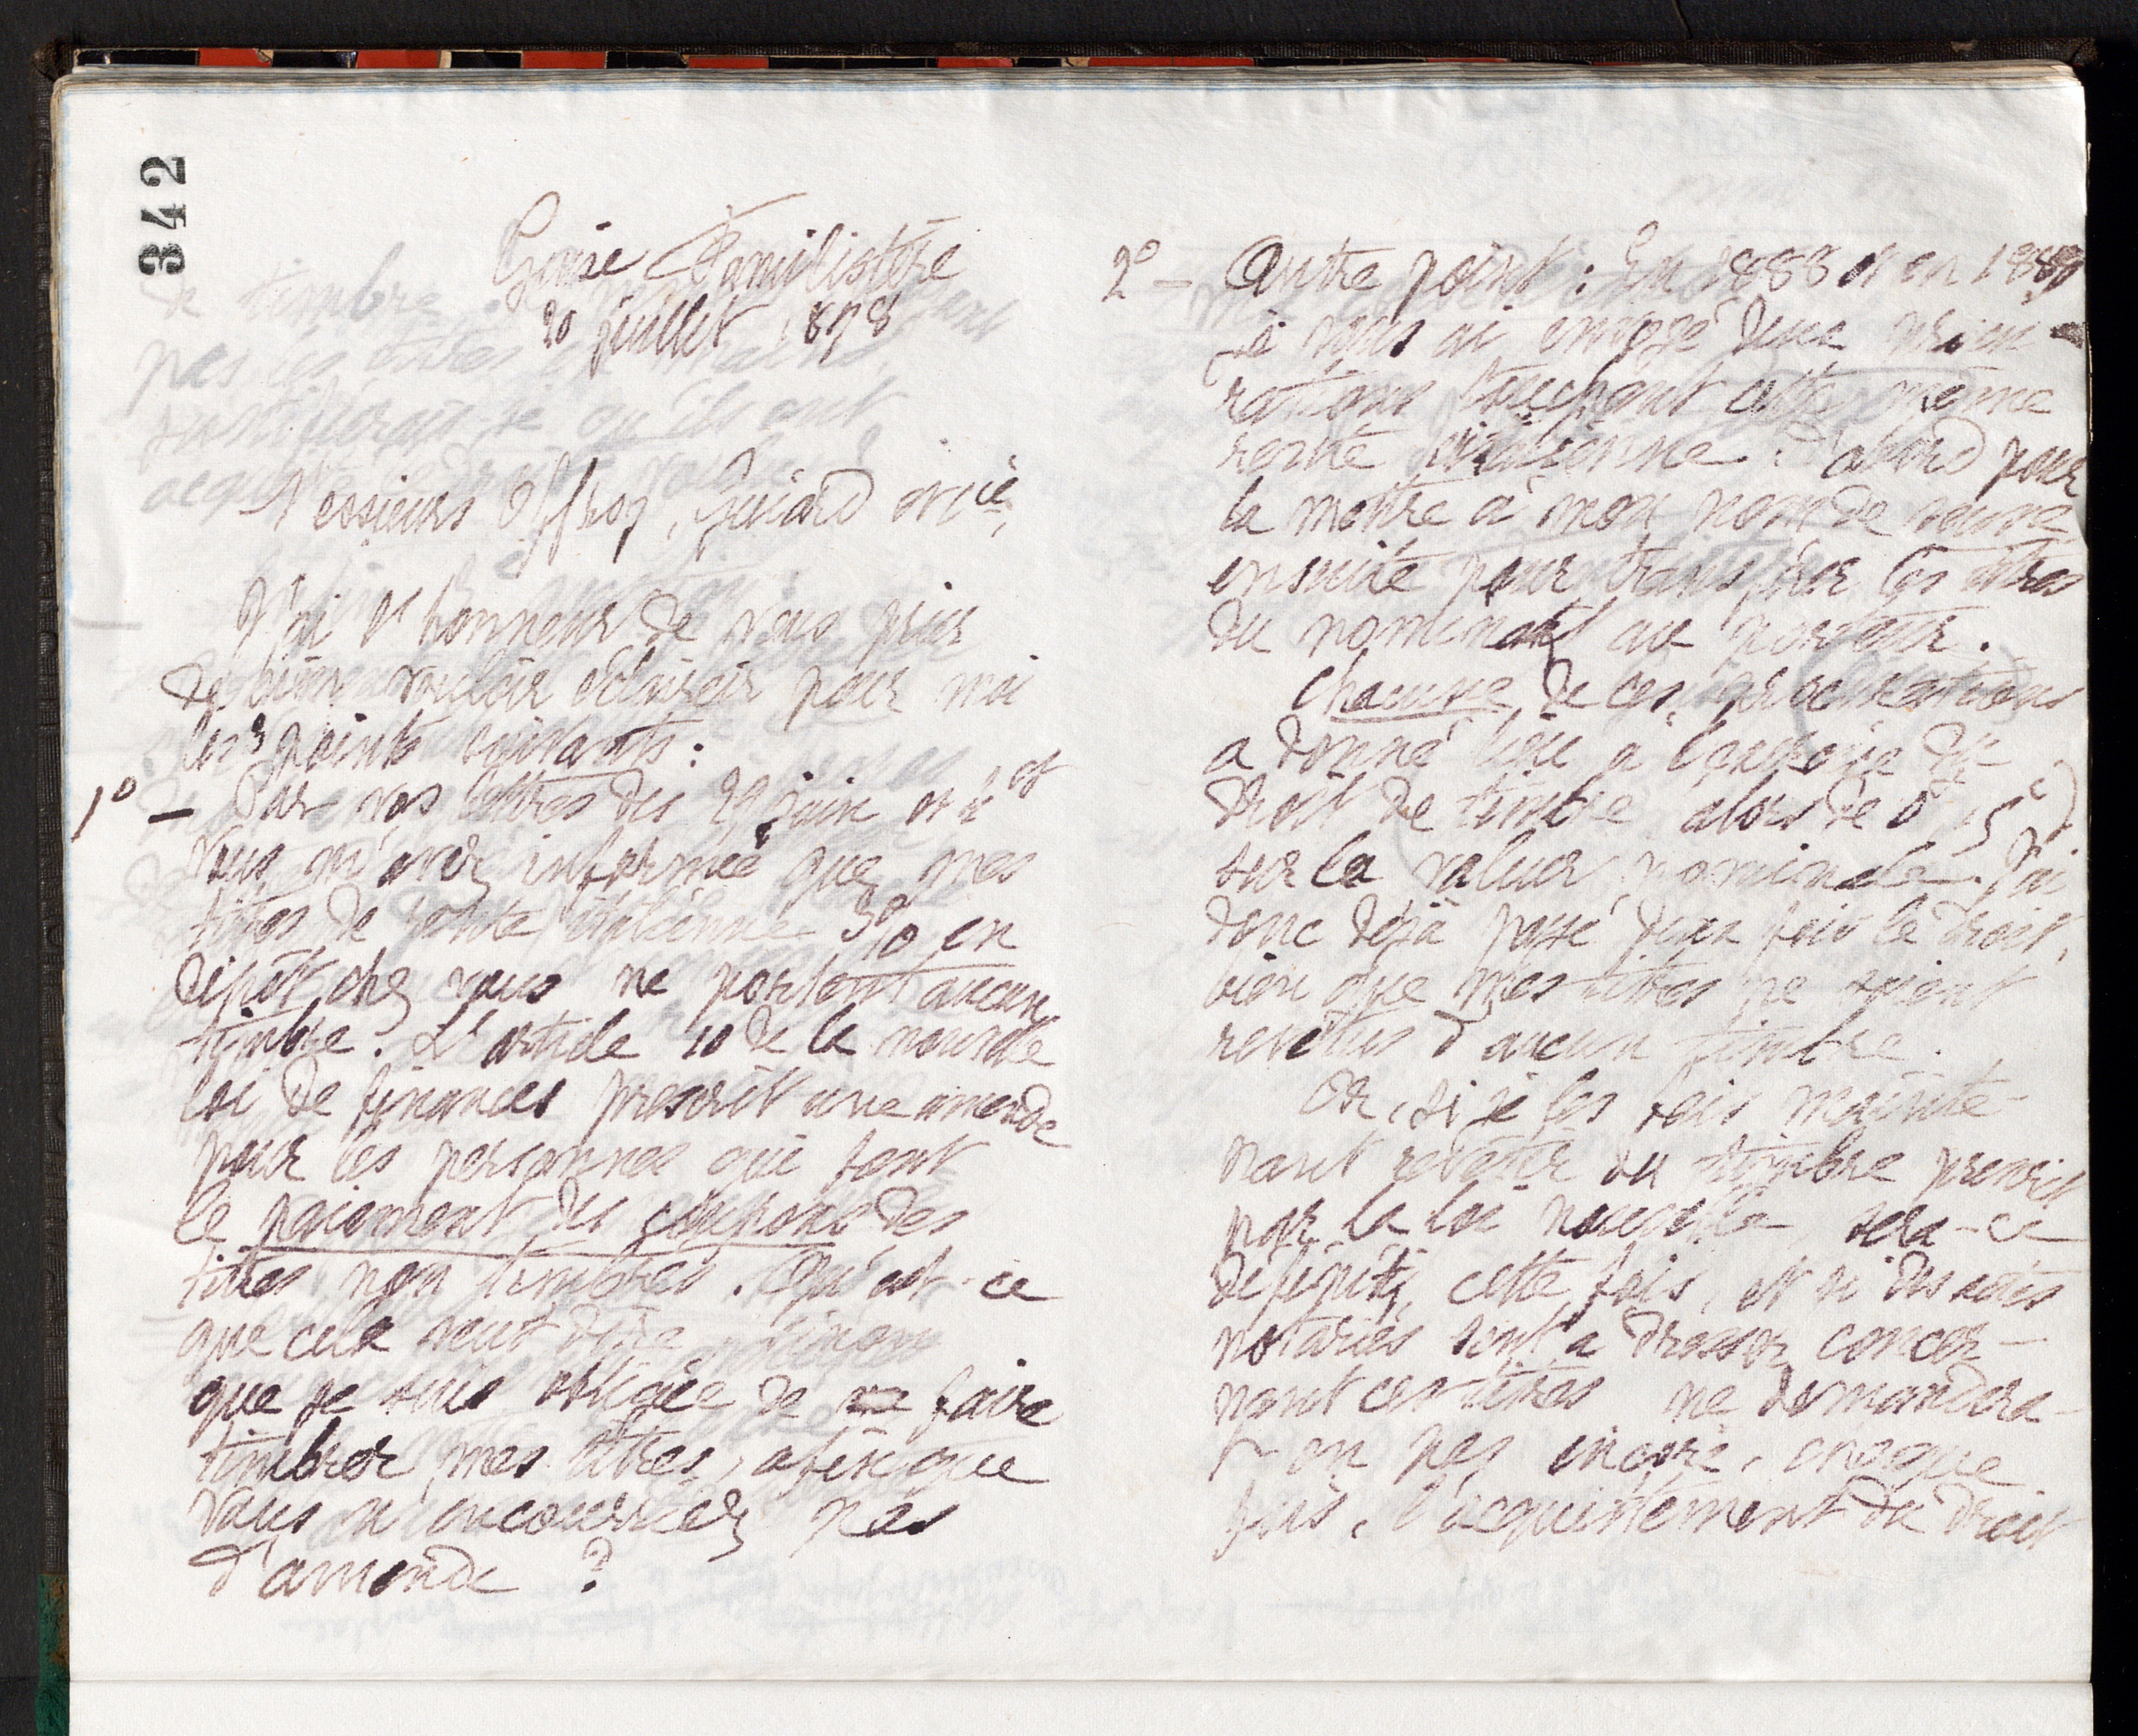 342
Guise Familistère
20 juillet 1898
Messieurs Offroy, Guiard et Cie,
J'ai l'honneur de vous prier
de bien vouloir éclaircir pour moi
les points suivants :
1° — Par vos lettres des 29 juin et
vous m'avez informée que mes
titres de rente italienne 5% en
dépôt chez vous ne portent aucun
timbre. L'article 10 de la nouvelle
loi de finances prescrit une amende
pour les personnes qui font
le paiement des coupons des
titres non timbrés. Qu'est-ce
que cela veut dire, sinon
que je suis obligée de faire
timbrer mes titres, afin que
vous n'encourriez pas
d'amende ?
2° — Autre point : En 1888 et en 1889
je vous ai envoyé deux
touchant cette même
rente italienne. D'abord pour
la mettre à mon nom de veuve
ensuite pour transférer les titres
du nominatif au porteur.
Chacune de ces procurations
a donné lieu à du
droit de timbre alors de
sur la valeur nominale. J'ai
donc déjà payé deux fois le droit,
bien que mes titres ne soient
revêtus d'aucun timbre.
Or, si je les fais mainte-
nant revêtir du timbre prescrit
par la loi nouvelle, sera-ce
définitif, cette fois, et si des actes
notariés sont à dresser concer-
nant ces titres ne demandera-
t-on pas encore, chaque
fois, l'acquittement du droit